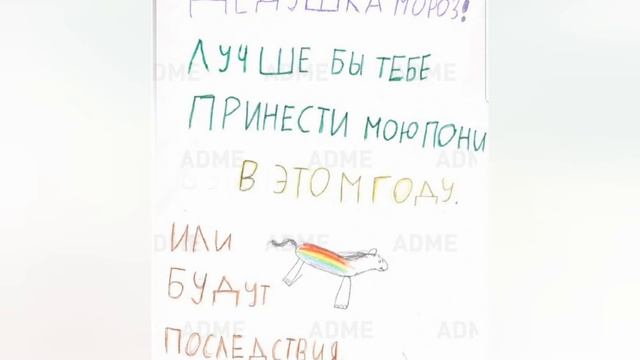 ДЕДУШКА МОРОЗ!
ЛУЧШЕ БЫ ТЕБЕ
ПРИНЕСТИ МОЮ ПОНИ
В ЭТОМ ГОДУ.
ИЛИ
БУДУТ
ПОСЛЕДСТВИЯ
ADME
ADME
ADME
ADME
ADME
ADME
ADME
ADME
ADME